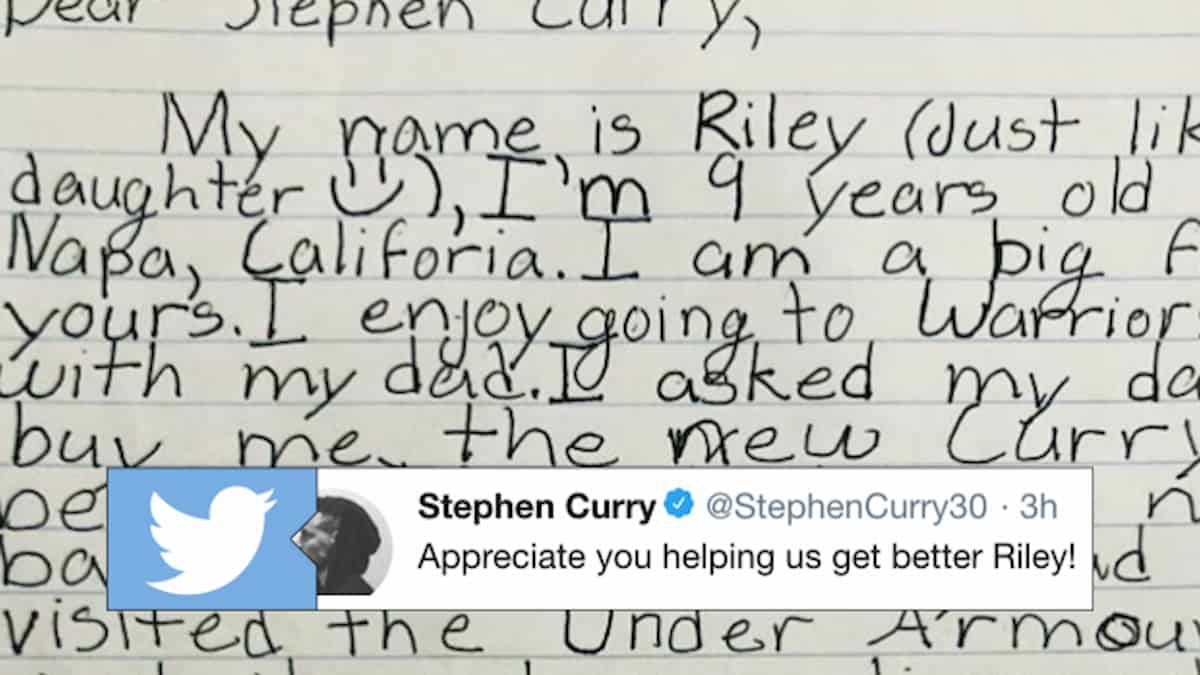 Dear Stephen Curry,
My name is Riley (Just lik
daughter ), I'm 9 years old
Napa, Califoria. I am a big f
yours. I enjoy going to Warrior
with my dad. I asked my da
buy me the new Curry
be
n
ba
nd
visited the Under Armour
Stephen Curry @StephenCurry30 · 3h
Appreciate you helping us get better Riley!